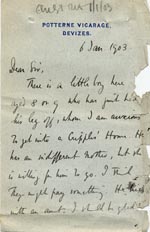 POTTERNE VICARAGE,
DEVIZES.
6 Jan 1903
Dear Sir,
There is a little boy here
aged 8 or 9 who has just had
his leg off, whom I am anxious
to get into a Cripples' Home. He
has an indifferent mother, but she
is willing for him to go. I think
they might pay something. He
with an aunt. I should be glad